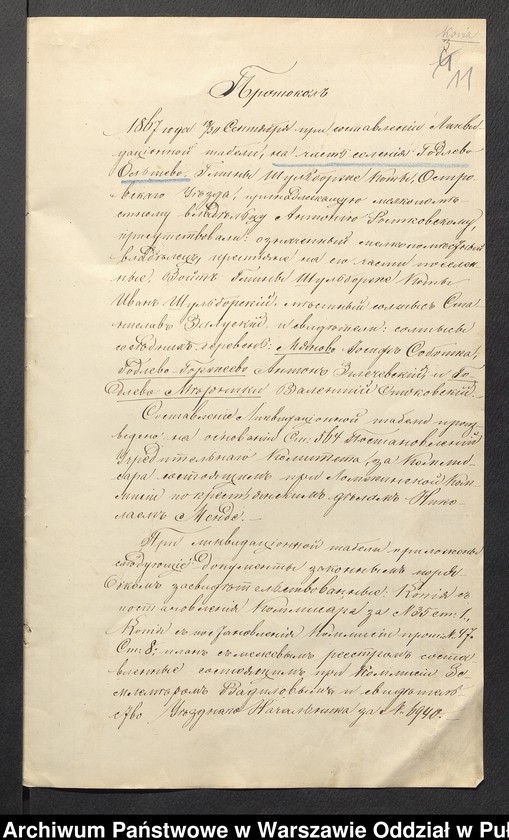 Копія
11
Протоколъ
1867 года 18/30 Сентября при составленіи Ликви
даціонной табели, на часть селенія Годлево
Гмины Шульборже Коты, Остро
вскаго Уѣзда, принадлежащую мелкопомѣ
стному владѣльцу Антонію Ростковскому,
присутствовали: означенный мелкопомѣстный
владѣлецъ, крестьяне на его части поселен
ные, Войтъ Гмины Шульборже Коты
Иванъ Шульборскій, мѣстный солтысъ Ста
ниславъ Залускій и свидѣтели: солтысы
сосѣднихъ деревень: Мяново Іосифъ Соботка,
Годлево-Горжеево Антонъ и Го
длево Мѣрники Валентій
Составленіе Ликвидаціонной табели произ
ведено на основаніи Ст. 564 Постановленій
Учредительнаго Комитета, за Комми
сара состоящимъ при Ломжинской Ком
мисіи по крестьянскимъ дѣламъ Нико
лаемъ Менде.—
При ликвидаціонной табели приложены
слѣдующіе документы законнымъ поряд
комъ засвидѣтельствованные: Копія съ
постановленія Коммисара за № 35 ст. 1,
Копія съ постановленія Коммисіи прот. № 47
Ст. 8; планъ съ межевымъ реестромъ соста
вленные состоящимъ при Коммисіи Зе
млемѣромъ и свидѣтель
ство Уѣзднаго Начальника за № 6940.—
Archiwum Państwowe w Warszawie Oddział w Puł